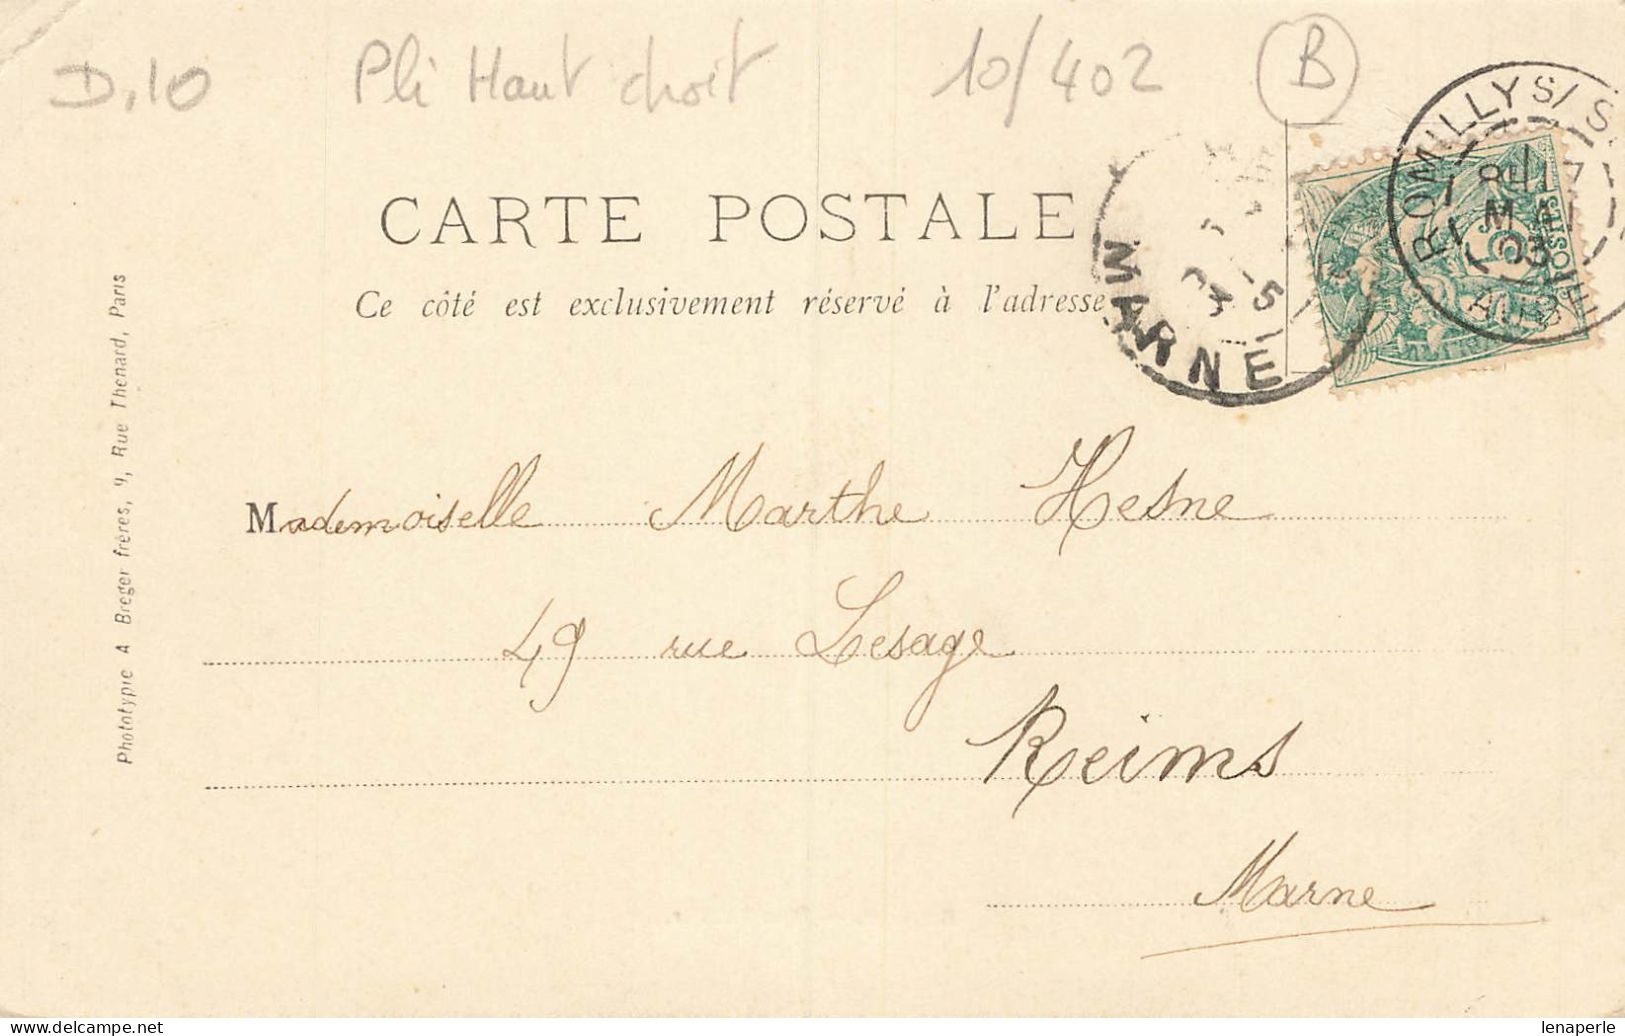 D.10 Pli Haut droit 10/402 B
ROMILLY S/ S
MAI
03
AUBE
MARNE
CARTE POSTALE
Ce côté est exclusivement réservé à l'adresse
Phototypie A Breger frères, 9, Rue Thénard, Paris
Mademoiselle Marthe Hesne
49 rue Lesage
Reims
Marne
delcampe.net
lenaperle